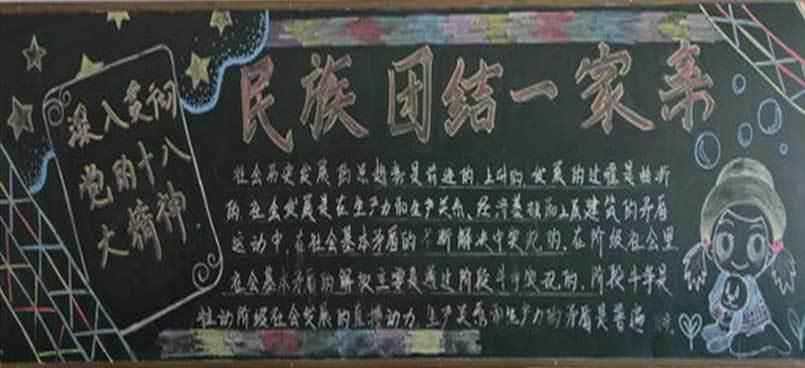 民族团结一家亲
深入贯彻
党的十八
大精神.
社会历史发展的总趋势是前进的,上升的,发展的过程是曲折
的.社会发展是在生产力和生产关系、经济基础和上层建筑的矛盾
运动中,在社会基本矛盾的不断解决中实现的、在阶级社会里
社会基本矛盾的解决主要是通过阶级斗争实现的,阶级斗争是
推动阶级社会发展的直接动力,生产关系和生产力的矛盾是普遍